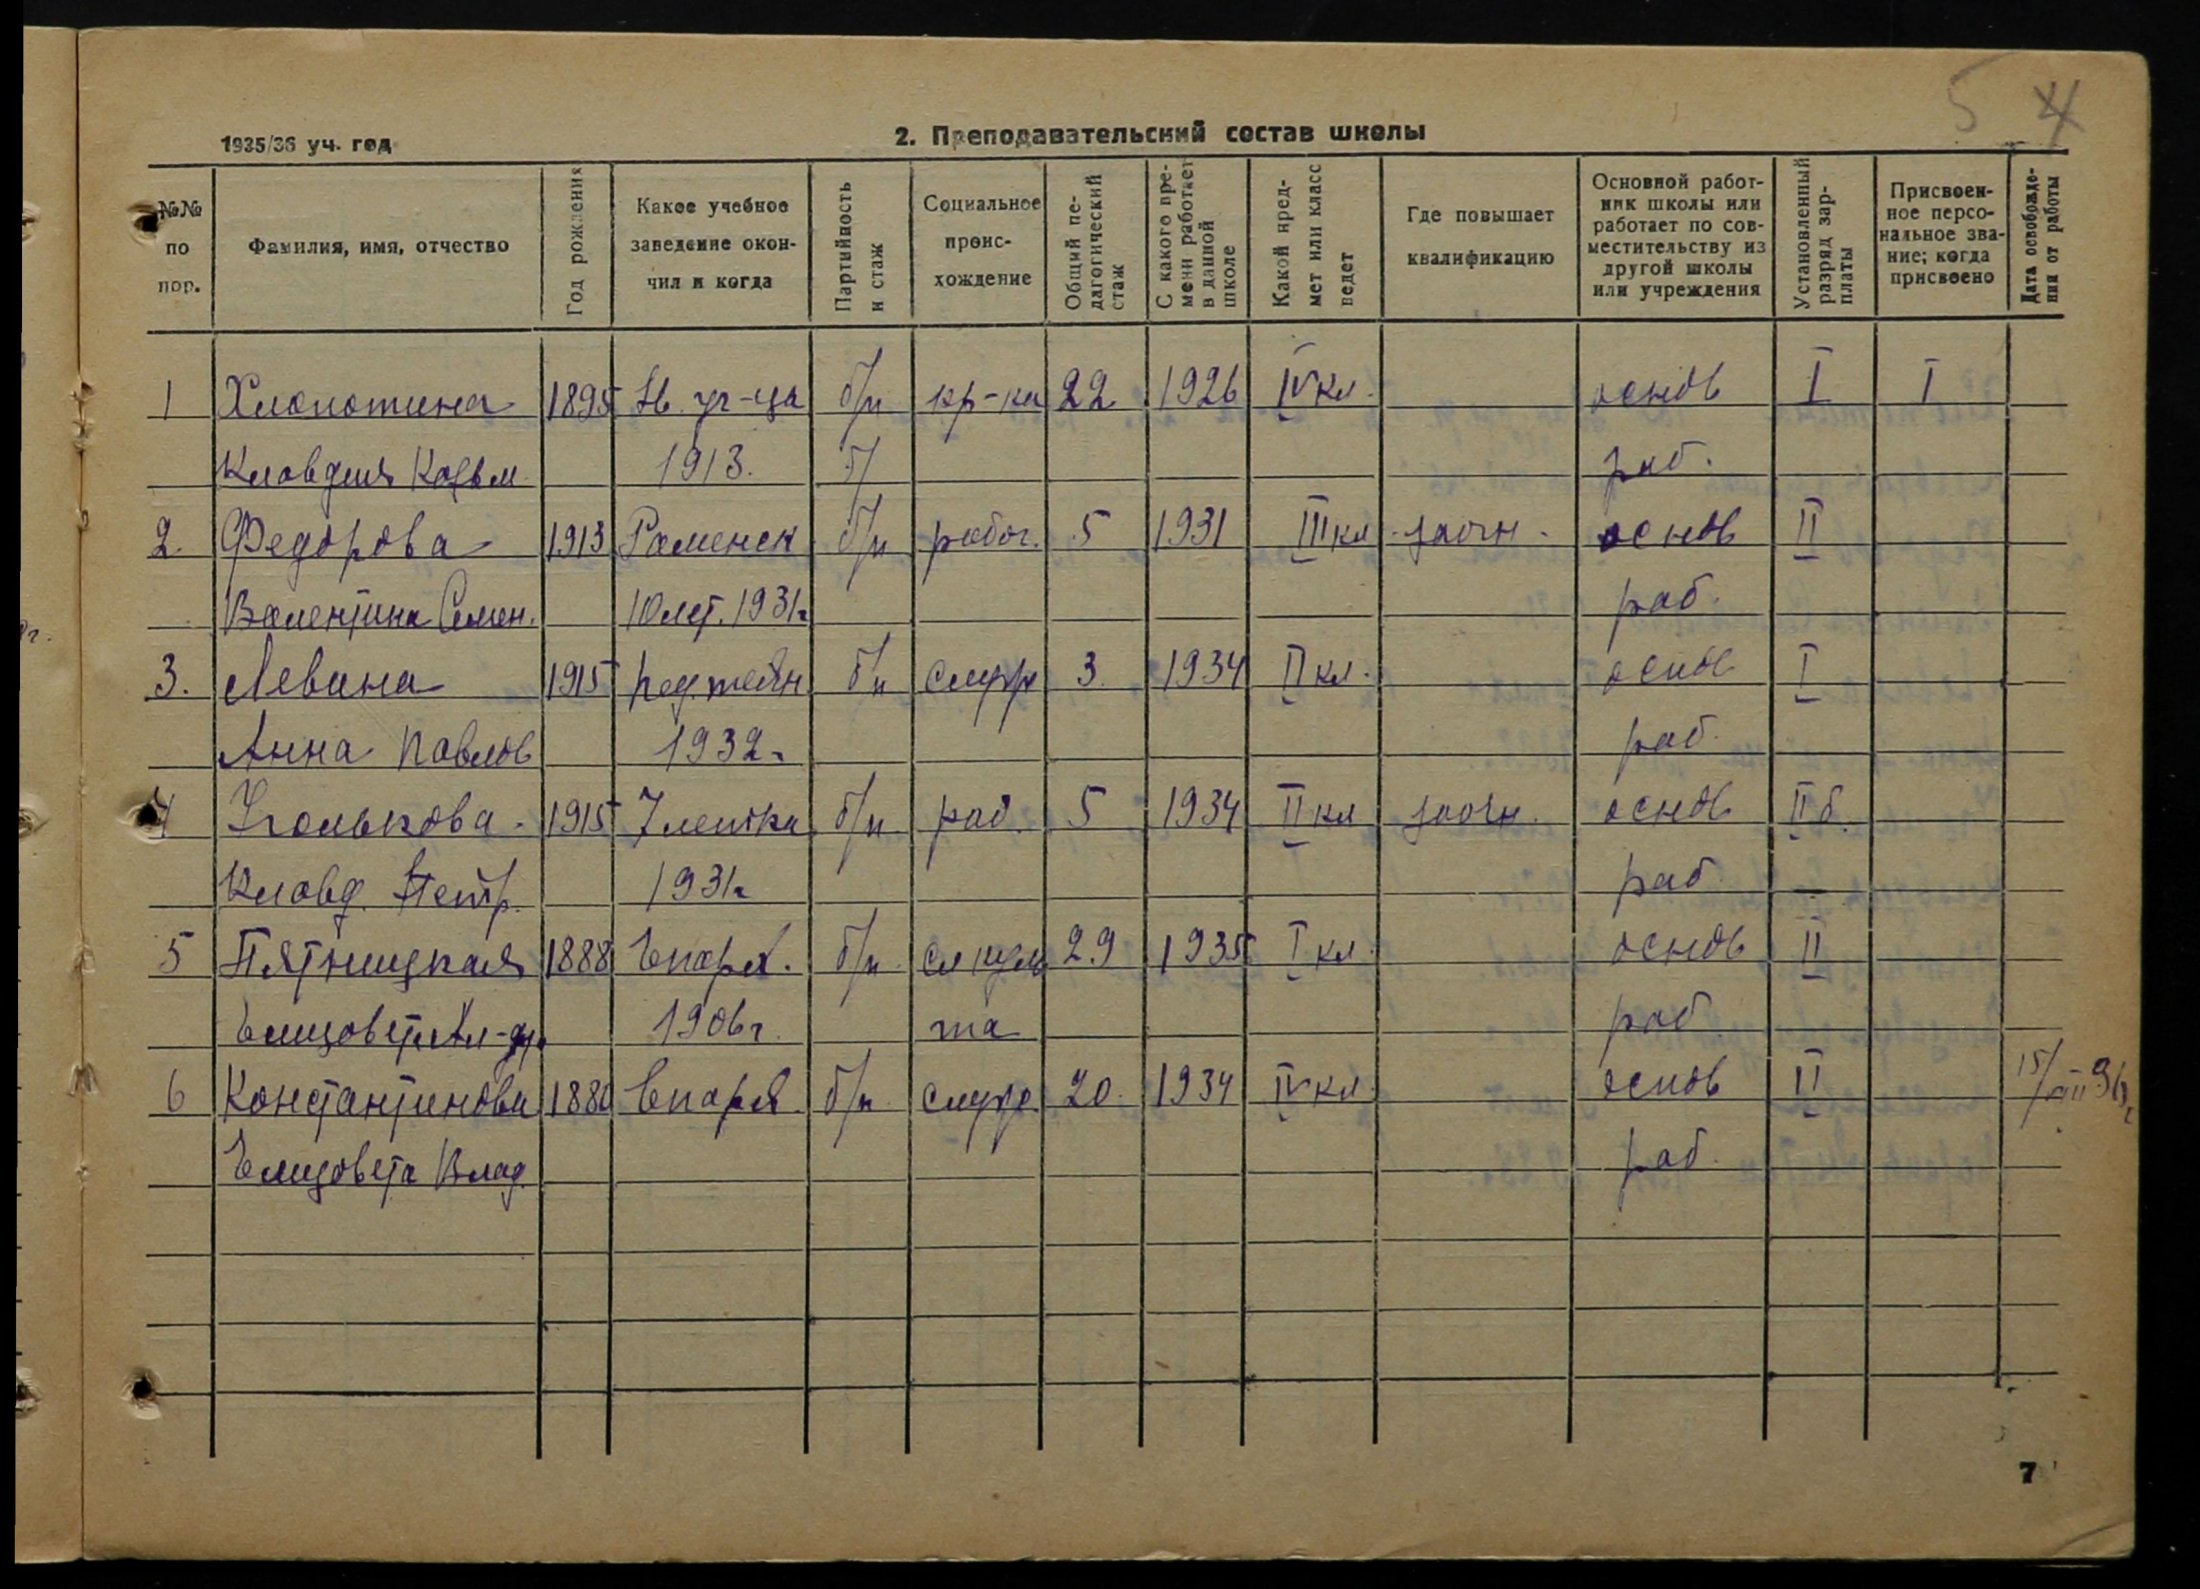 5 4
1935/36 уч. год
2. Преподавательский состав школы
№№ по пор.
Фамилия, имя, отчество
Год рождения
Какое учебное заведение окончил и когда
Партийность и стаж
Социальное происхождение
Общий педагогический стаж
С какого времени работает в данной школе
Какой предмет или класс ведет
Где повышает квалификацию
Основной работник школы или работает по совместительству из другой школы или учреждения
Установленный разряд зарплаты
Присвоенное персональное звание; когда присвоено
Дата освобождения от работы
1 Хлопотина 1895 уч-ща б/п кр-ка 22 1926 IV кл. основ I I
Клавдия Козьм. 1913. б/ раб.
2 Федорова 1913 Раменск б/п рабоч. 5 1931 III кл заочн. основ II
Валентина Семен. 10 лет. 1931г раб.
3. Левина 1915 пед. техн б/п служ 3. 1934 II кл. основ I
Анна Павлов 1932г раб.
4 Уголькова 1915 7 летка б/п раб. 5 1934 II кл заочн. основ II б.
Клавд. Петр. 1931г раб
5 Пятницкая 1888 Епарх. б/п 29 1935 I кл. основ II
Елизавета Ал-др. 1906г. та раб
6 Константинова 188 Епарх. б/п служ. 20. 1934 IV кл. основ II 15/
Елизавета Влад. раб.
7